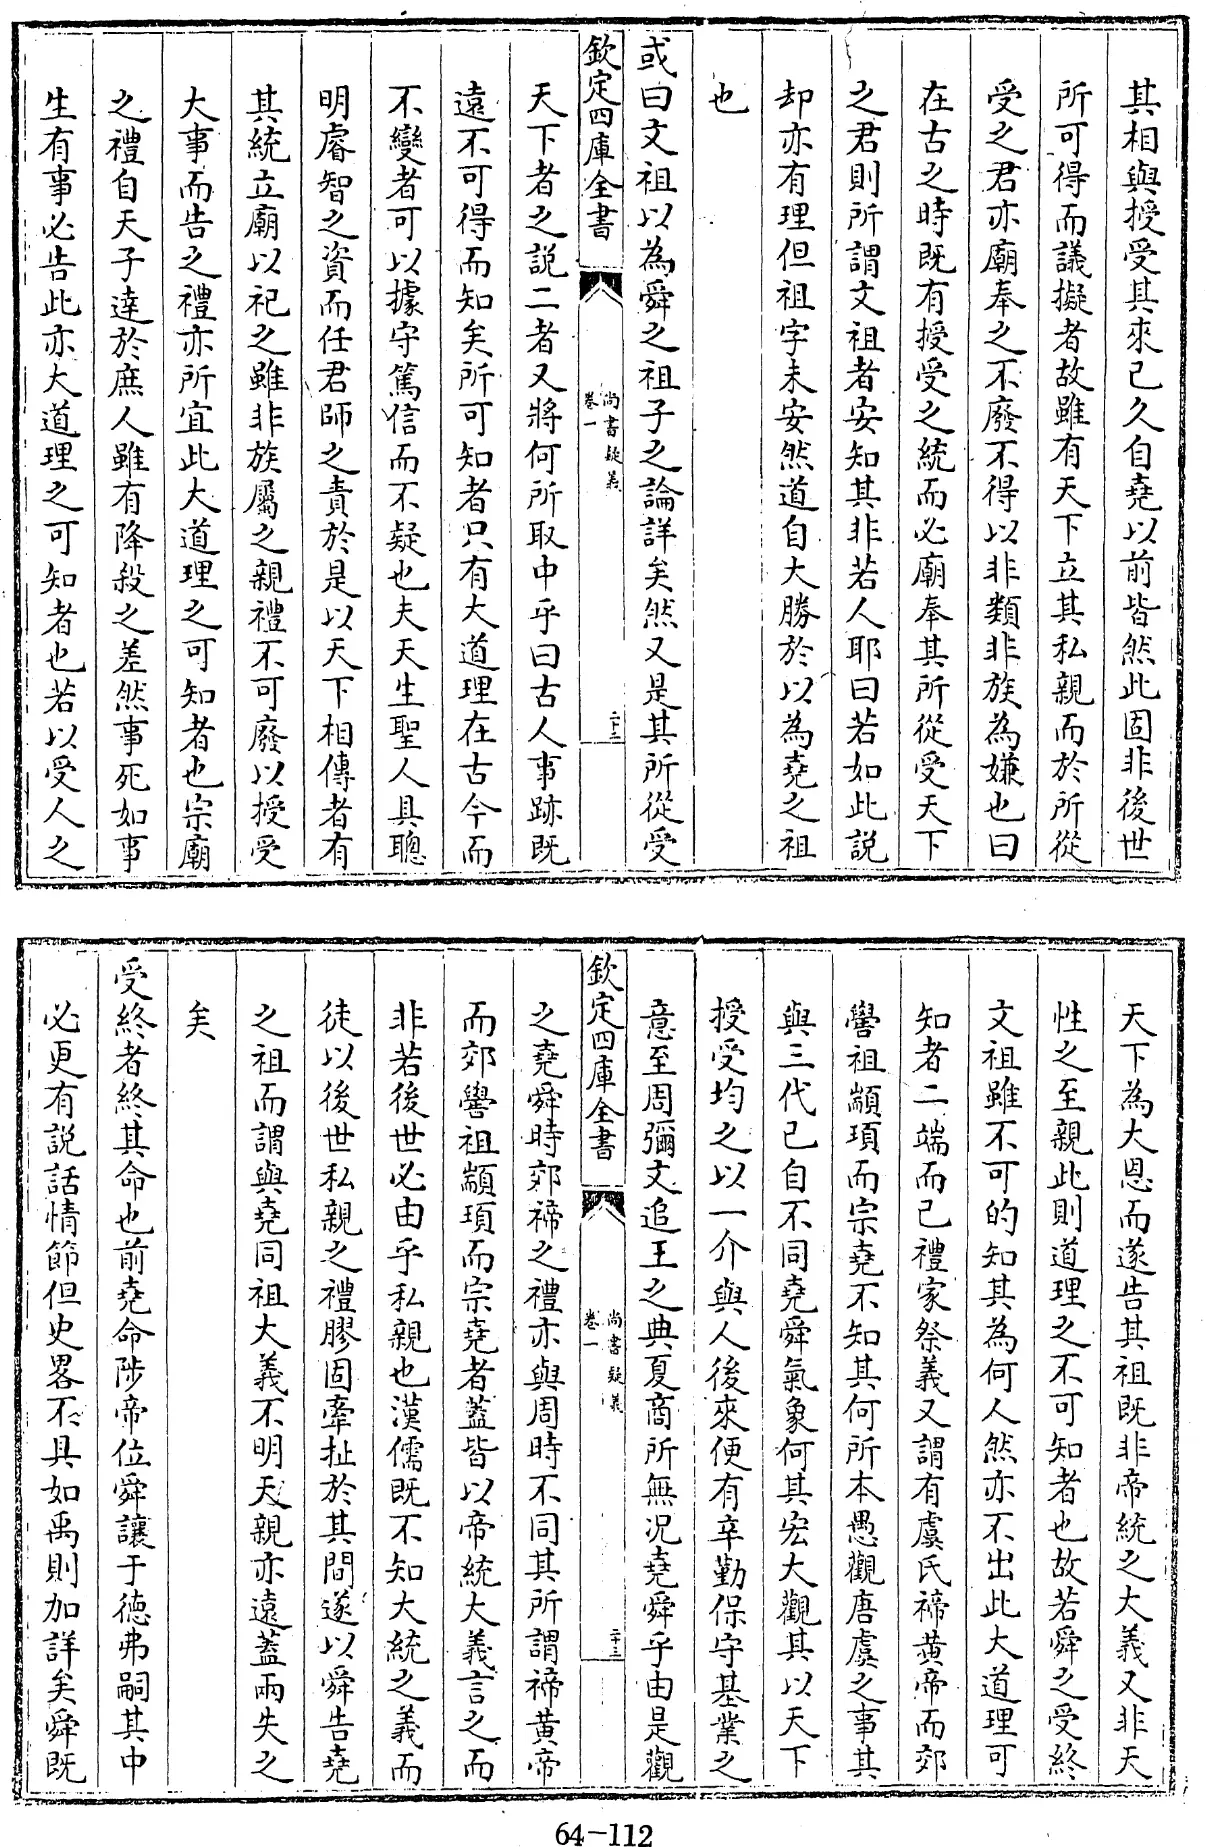 其相與授受其來已久自堯以前皆然此固非後世
所可得而議擬者故雖有天下立其私親而於所從
受之君亦廟奉之不廢不得以非類非族為嫌也曰
在古之時既有授受之統而必廟奉其所從受天下
之君則所謂文祖者安知其非若人耶曰若如此説
却亦有理但祖字未安然道自大勝於以為堯之祖
也
或曰文祖以為舜之祖子之論詳矣然又是其所從受
欽定四庫全書
尚書疑義
卷一
二十二
天下者之説二者又將何所取中乎曰古人事跡既
遠不可得而知矣所可知者只有大道理在古今而
不變者可以據守篤信而不疑也夫天生聖人具聰
明睿智之資而任君師之責於是以天下相傳者有
其統立廟以祀之雖非族屬之親禮不可廢以授受
大事而告之禮亦所宜此大道理之可知者也宗廟
之禮自天子達於庶人雖有降殺之差然事死如事
生有事必告此亦大道理之可知者也若以受人之
天下為大恩而遂告其祖既非帝統之大義又非天
性之至親此則道理之不可知者也故若舜之受終
文祖雖不可的知其為何人然亦不出此大道理可
知者二端而已禮家祭義又謂有虞氏禘黃帝而郊
嚳祖顓頊而宗堯不知其何所本愚觀唐虞之事其
與三代已自不同堯舜氣象何其宏大觀其以天下
授受均之以一介與人後來便有辛勤保守基業之
意至周彌文追王之典夏商所無况堯舜乎由是觀
欽定四庫全書
尚書疑義
卷一
二十三
之堯舜時郊禘之禮亦與周時不同其所謂禘黃帝
而郊嚳祖顓頊而宗堯者蓋皆以帝統大義言之而
非若後世必由乎私親也漢儒既不知大統之義而
徒以後世私親之禮膠固牽扯於其間遂以舜告堯
之祖而謂與堯同祖大義不明天親亦遠蓋兩失之
矣
受終者終其命也前堯命陟帝位舜讓于德弗嗣其中
必更有説話情節但史畧不具如禹則加詳矣舜既
64-112